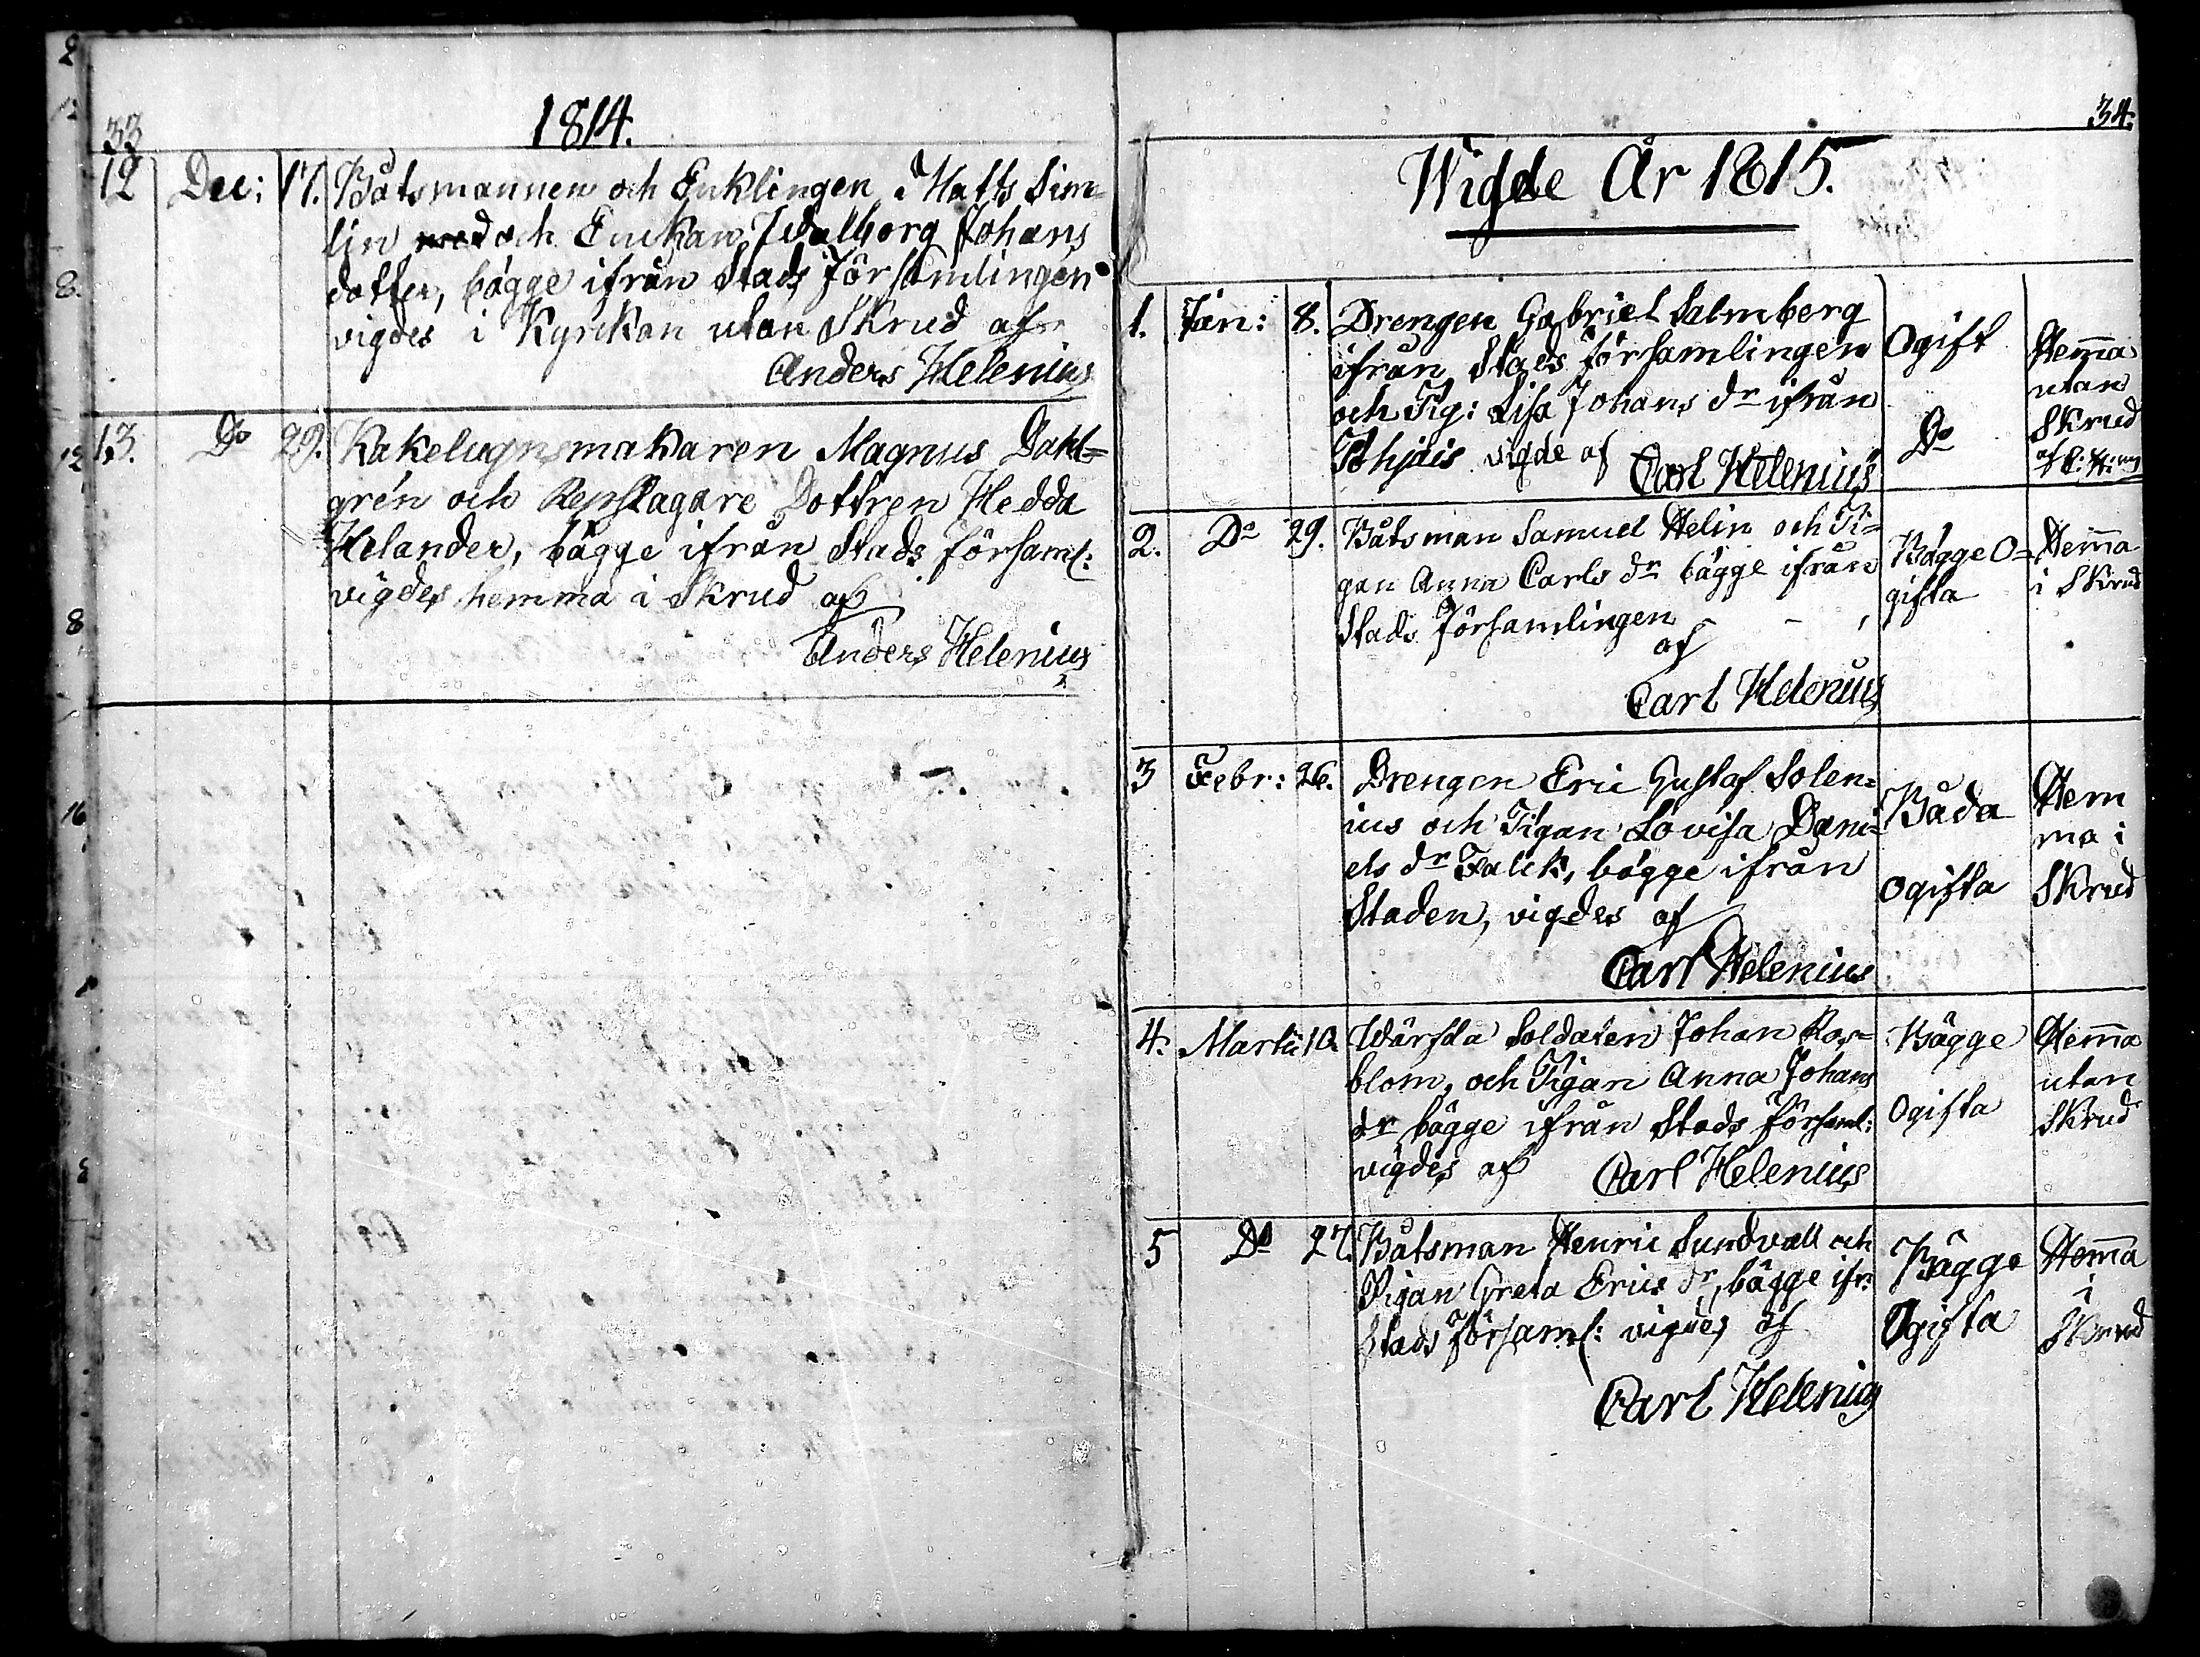 33
1814.
12 Dec: 17. Båtsmannen och Enklingen Matts Sim=
lin och Enckan Walborg Johans
dotter, bägge ifrån Stads församlingen
vigdes i Kyrckan utan Skrud af
Anders Helenius
13. Do 29. Kakelugnsmakaren Magnus Dahl=
grén och Repslagare Dottren Hedda
Helander, bägge ifrån Stads församl:
vigdes hemma i Skrud af
Anders Helenius
34.
Wigde År 1815.
1. Jan: 8. Drengen Gabriel Salmberg
ifrån Stads församlingen Ogift Hemma
och Pig: Lisa Johans dr ifrån utan
Pohjais vigde af Do Skrud
Carl Helenius af C: H:
2. Do 29. Båtsman Samuel Helin och Pi= Bägge O= Hemma
gan Anna Carls dr bägge ifrån gifta i Skrud
Stads församlingen
af
Carl Helenius
3 Febr: 26. Drengen Eric Gustaf Solen= Båda Hem
ius och Pigan Lovisa Dani= ma i
els dr Falck, bägge ifrån Ogifta Skrud
Staden, vigdes af
Carl Helenius
4. Martii 10. Wärfda Soldaten Johan Ros= Bägge Hemma
blom, och Pigan Anna Johans utan
dr bägge ifrån Stads församl: Ogifta Skrud
vigdes af Carl Helenius
5 Do 27. Båtsman Henric Sundvall och Bägge Hemma
Pigan Greta Erics dr, bägge ifr: i
Stads församl: vigdes af Ogifta Skrud
Carl Helenius